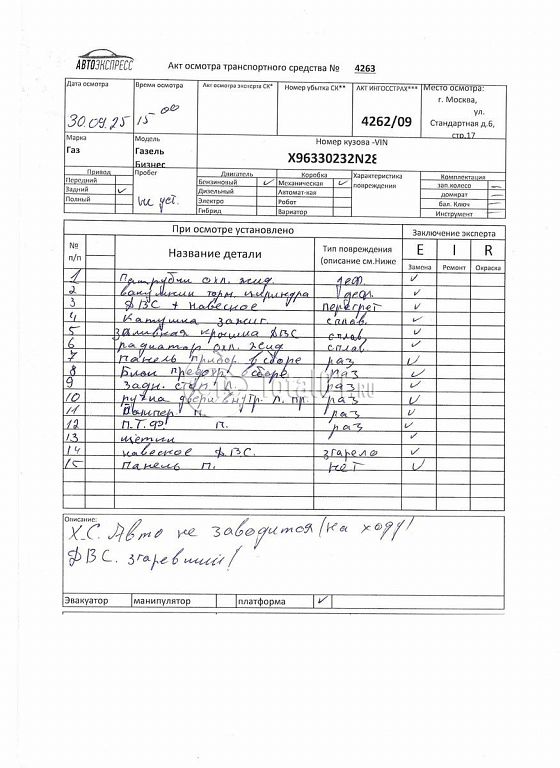 АВТОЭКСПРЕСС
Акт осмотра транспортного средства № 4263
Дата осмотра Время осмотра Акт осмотра эксперта СК* Номер убытка СК** АКТ ИНГОССТРАХ*** Место осмотра:
30.09.25 15 00 4262/09 г. Москва,
ул.
Стандартная д.6,
стр.17
Марка Модель Номер кузова -VIN
Газ Газель
Бизнес X96330232N28
Привод Пробег Двигатель Коробка Характеристика повреждения Комплектация
Передний Бензиновый ✓ Механическая ✓ зап.колесо –
Задний ✓ не уст. Дизельный Автомат-кая домкрат –
Полный Электро Робот бал. Ключ –
Гибрид Вариатор Инструмент –
При осмотре установлено Заключение эксперта
№ п/п Название детали Тип повреждения (описание см.Ниже E I R
Замена Ремонт Окраска
1 Патрубки охл. жид. деф. ✓
2 вакуумник торм. цилиндра деф. ✓
3 ДВС + навесное перегрет ✓
4 Катушка зажиг. сплав. ✓
5 заливная крышка ДВС сплав. ✓
6 радиатор охл. жид сплав. ✓
7 Панель прибор в сборе раз ✓
8 Блок предохр. в сборе раз ✓
9 Задн. стоп. л. раз ✓
10 ручка двери внутр. л. пр. раз ✓
11 Бампер п. раз ✓
12 П.Т.Ф. п. раз ✓
13 щетки ✓
14 навесное ДВС. згарело ✓
15 Панель п. нет ✓
Описание:
Х.С. Авто не заводится (на ходу)
ДВС. згаревший!
Эвакуатор манипулятор платформа ✓